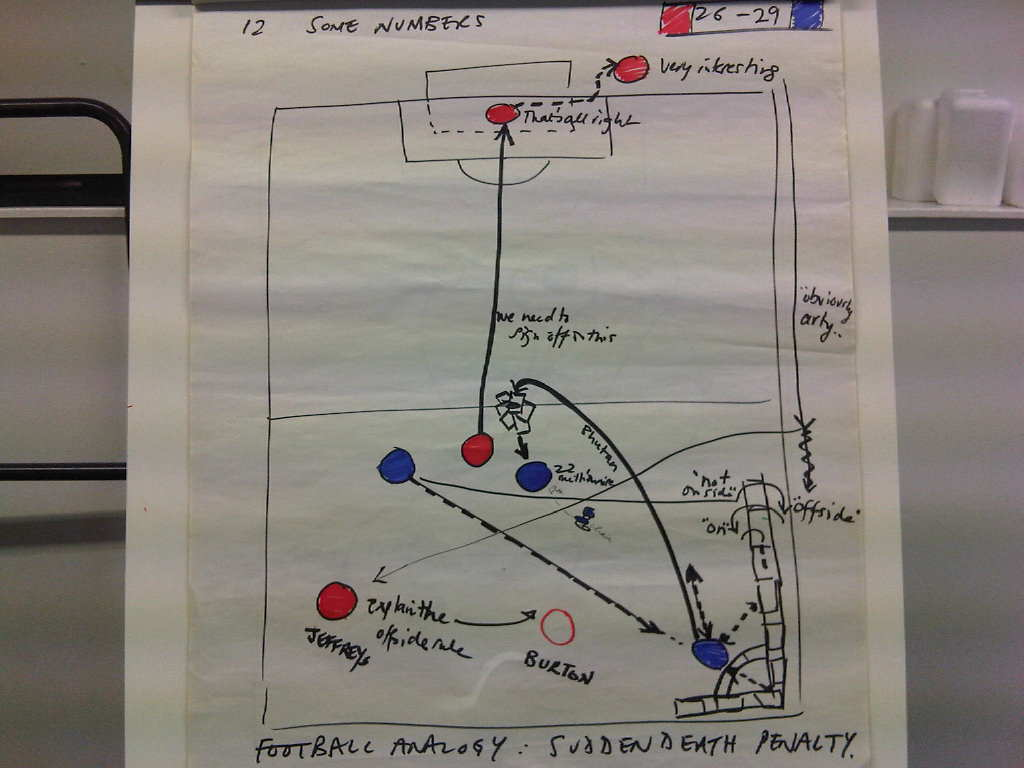 12 SOME NUMBERS
26-29
Very interesting
That's all right
"obviously
arty..
we need to
sign off on this
Bhutan
22
"not
on side"
"offside"
"on"
explain the
offside rule
JEFFREYS
BURTON
FOOTBALL ANALOGY: SUDDEN DEATH PENALTY.